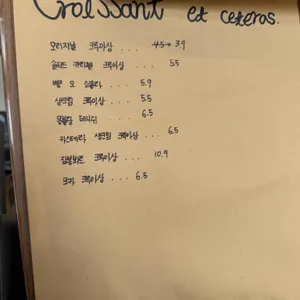 Croissant et ceteros.
오리지널 크루아상 ... 4.5→ 3.9
솔티드 카라멜 크루아상 ... 5.5
뺑 오 쇼콜라 ... 5.9
생크림 크루아상 ... 5.5
몽블랑 데니쉬 ... 6.5
커스터드 생크림 크루아상 ... 6.5
잠봉뵈르 크루아상 ... 10.9
모카 크루아상 ... 6.5